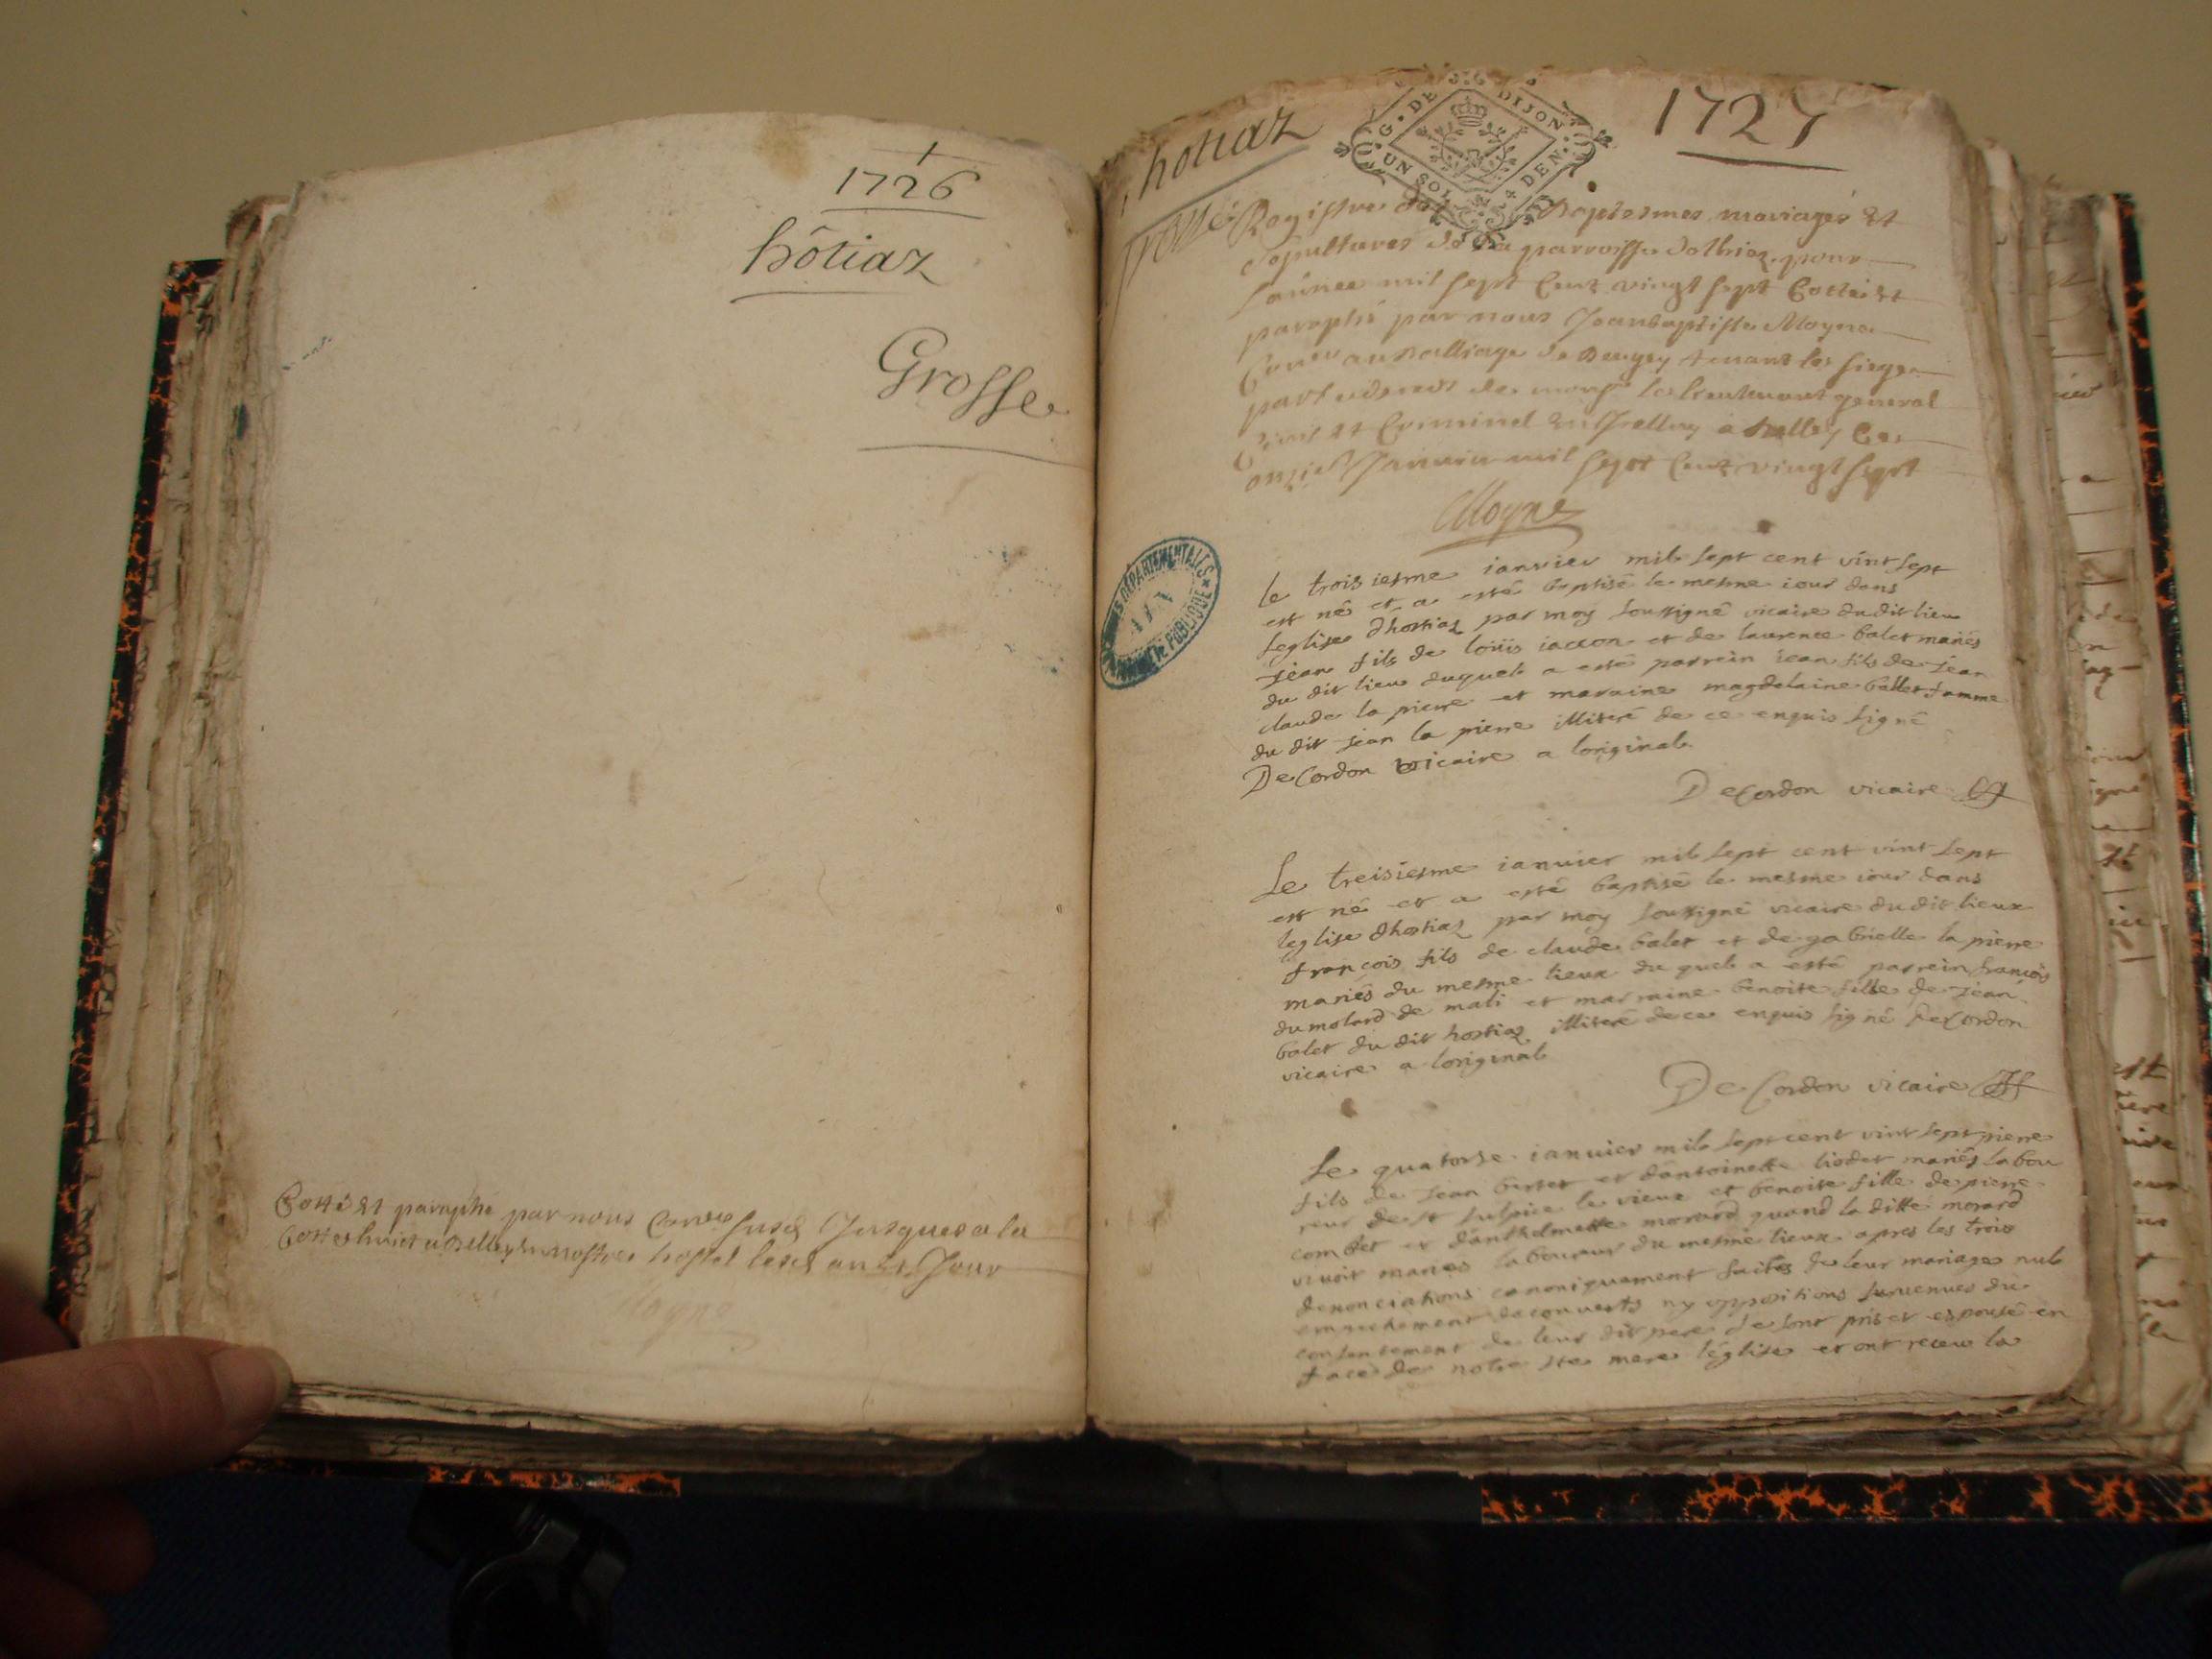 1726
hôtiaz
Grosse
Cotté et paraphé par nous Conser susd Jusques a la
Cotte huict a Belley en nostre hostel lesd an et Jour
Moyne
hotiaz
G. DE DIJON
UN SOL 4 DEN.
1727
Grosse
Registre des Baptesmes mariages et
sepultures de la parroisse dothiaz pour
lannee mil sept cent vingt sept Cotté et
paraphé par nous Jean baptiste Moyne
Conser au Balliage de Beugey tenant le siege
part de monsr le lieutenant general
Civil et Criminel a Belley Ce
onzie Janvier mil sept cent vingt sept
Moyne
ARCHIVES DÉPARTEMENTALES
AIN
PUBLIQUE
le troisiesme ianvier mil sept cent vint sept
est né et a esté baptisé le mesme iour dans
leglise dhostiaz par moy soussigné vicaire du dit lieu
jean fils de loüis iacon et de laurence balet mariés
du dit lieu duquel a esté parrein iean fils de jean
claude la pierre et maraine magdelaine ballet famme
du dit jean la pierre illiteré de ce enquis signé
DeCordon vicaire a loriginal.
DeCordon vicaire
Le treisiesme ianvier mil sept cent vint sept
est né et a esté baptisé le mesme iour dans
leglise dhostiaz par moy soussigné vicaire du dit lieux
françois fils de claude balet et de gabrielle la pierre
mariés du mesme lieux du quel a esté parrein francois
dumolard de mali et marraine benoite fille de jean
balet du dit hostiaz illiteré de ce enquis signé DeCordon
vicaire a loriginal
DeCordon vicaire
Le quatorse ianvier mil sept cent vint sept pierre
fils de jean bertet et dantoinette liodet mariés labou
reur de st sulpice le vieux et benoite fille de pierre
combet et danthelmette morard quand la ditte morard
vivoit mariés laboureur du mesme lieux apres les trois
denonciations canoniquement faites de leur mariage nul
empechement decouverts ny oppositions survenues du
consentement de leur dit pere se sont pris et espousé en
face de notre ste mere léglise et ont receu la